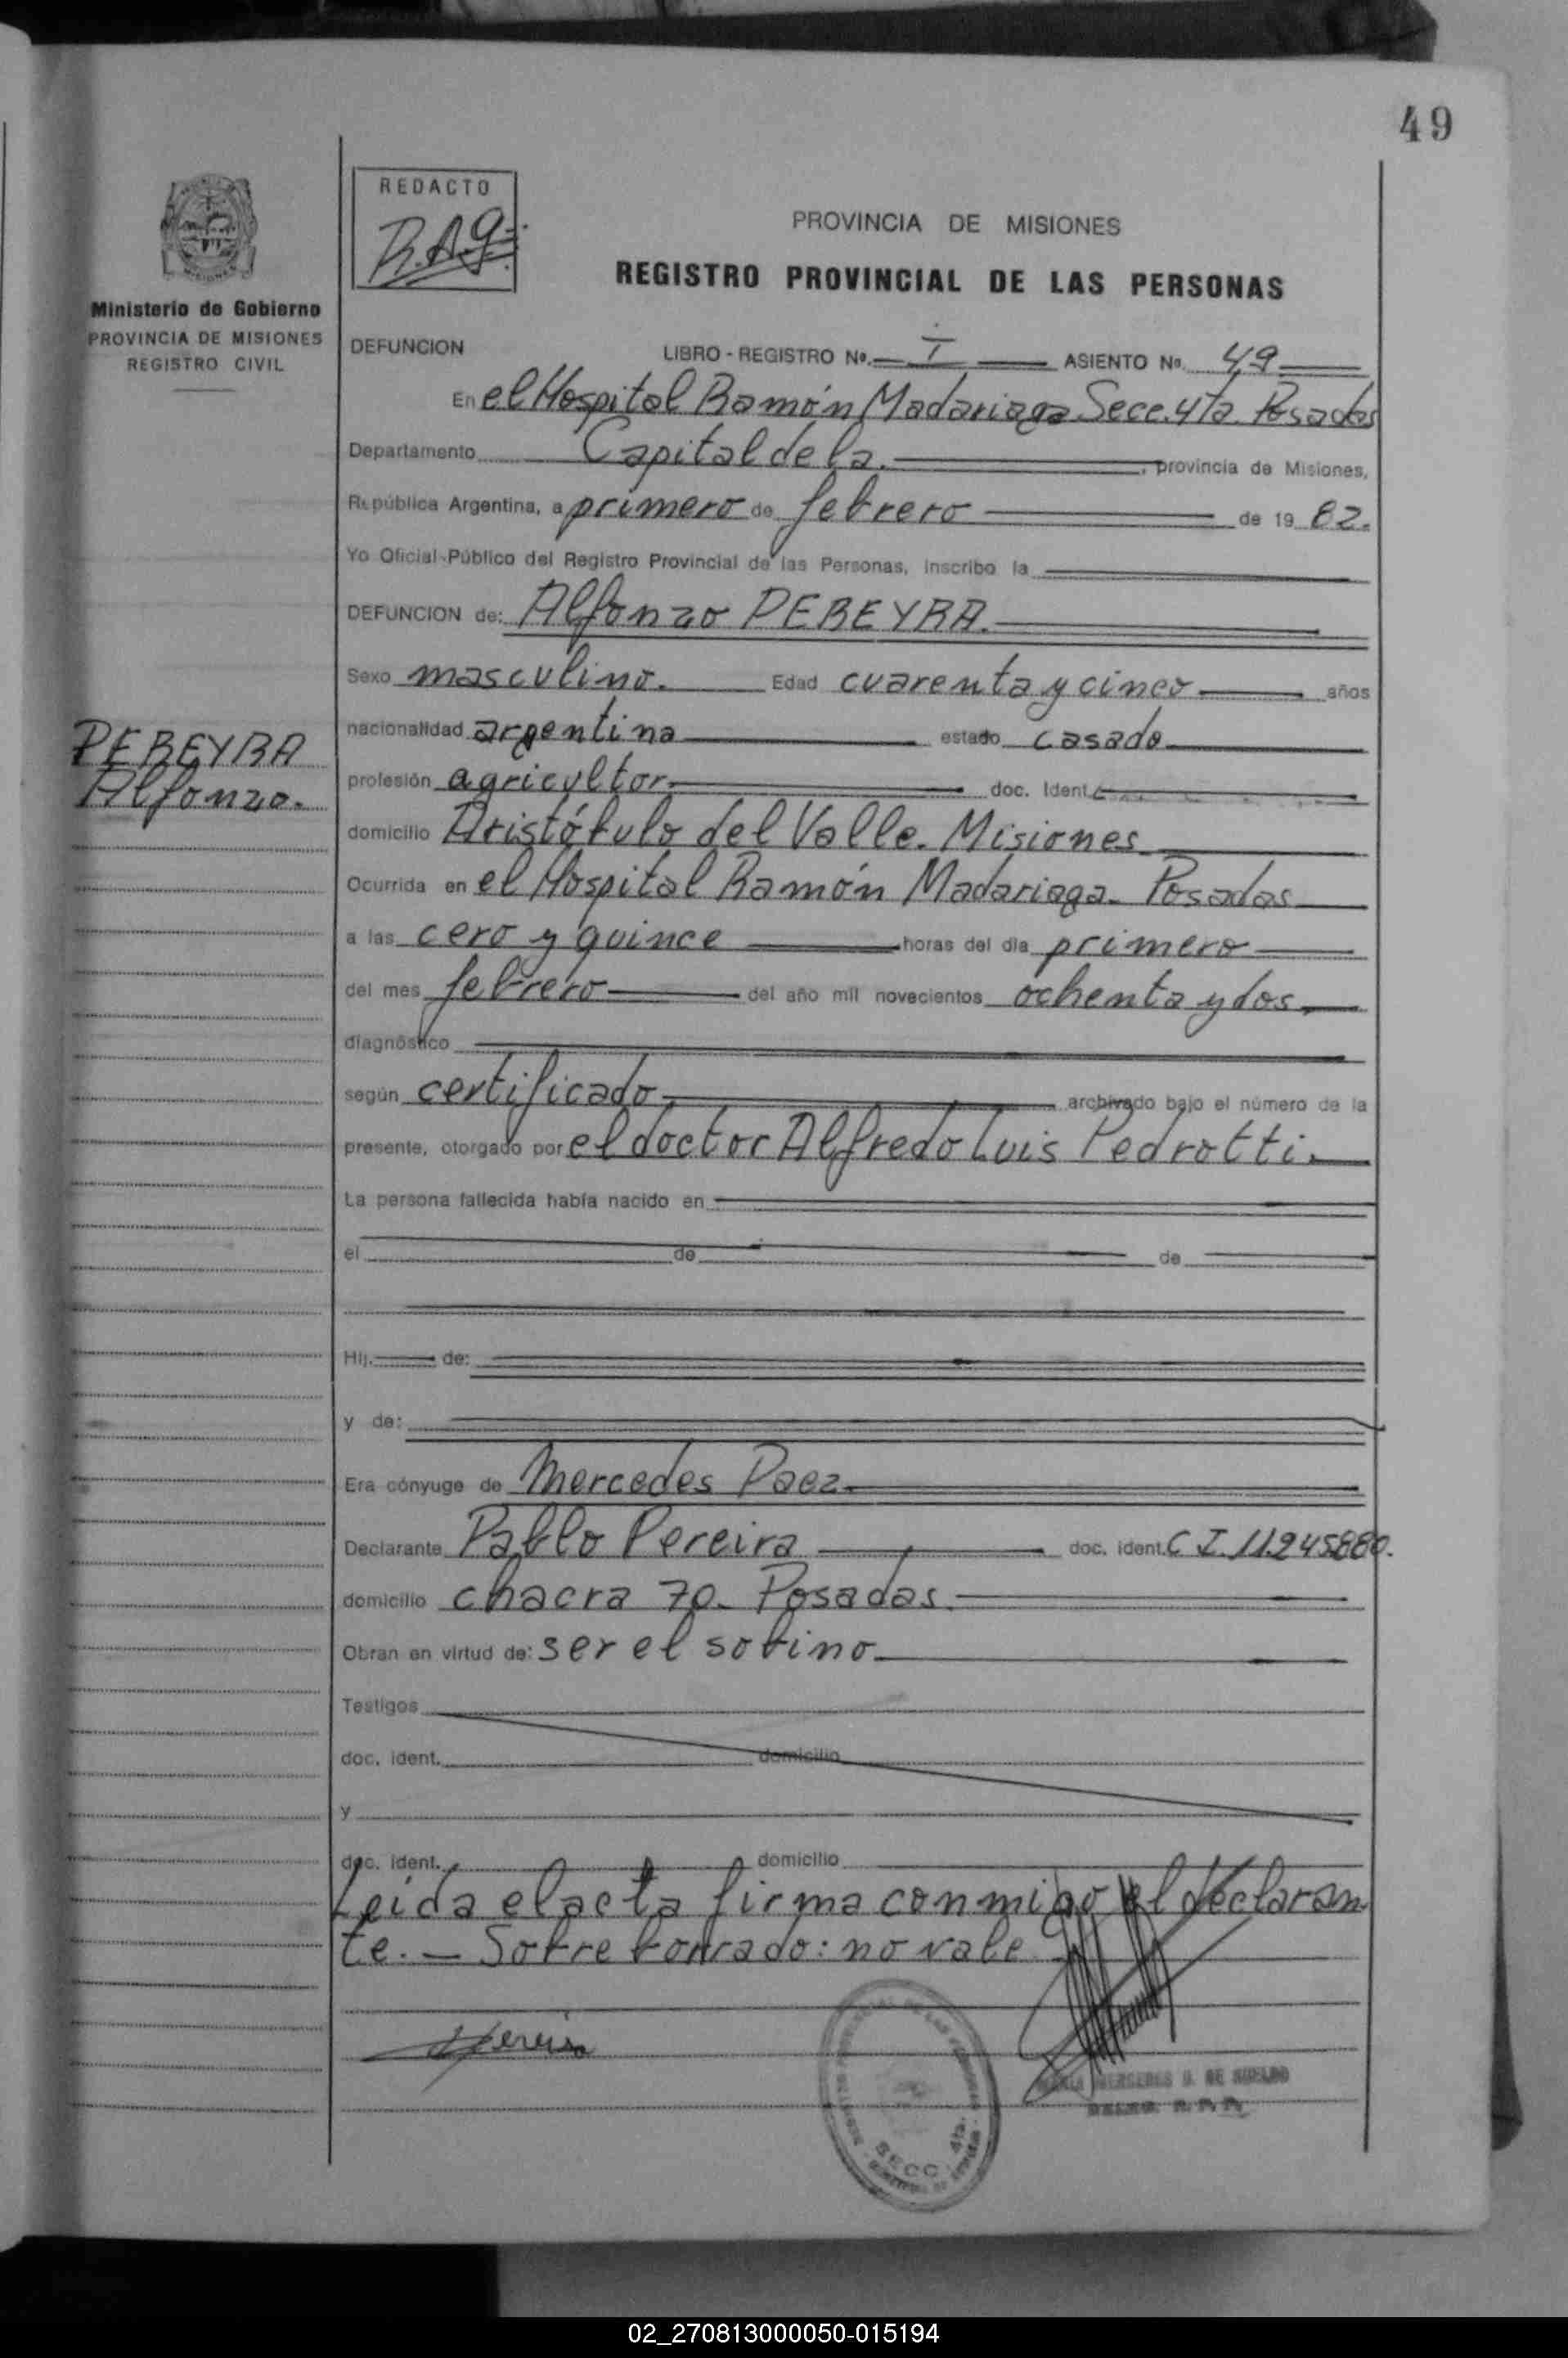 49
REDACTO
R.A.G.
PROVINCIA DE MISIONES
REGISTRO PROVINCIAL DE LAS PERSONAS
Ministerio de Gobierno
PROVINCIA DE MISIONES
REGISTRO CIVIL
DEFUNCION LIBRO - REGISTRO Nº. I ASIENTO Nº. 49
En el Hospital Ramón Madariaga Secc. 4ta. Posadas
Departamento Capital de la. , provincia de Misiones,
República Argentina, a primero de febrero de 19 82.
Yo Oficial Público del Registro Provincial de las Personas, inscribo la
DEFUNCION de: Alfonzo PEREYRA.
Sexo masculino. Edad cuarenta y cinco años
nacionalidad argentina estado casado
PEREYRA
Alfonzo.
profesión agricultor. doc. Ident.
domicilio Aristóbulo del Valle. Misiones
Ocurrida en el Hospital Ramón Madariaga. Posadas
a las cero y quince horas del día primero
del mes febrero del año mil novecientos ochenta y dos.
diagnóstico
según certificado archivado bajo el número de la
presente, otorgado por el doctor Alfredo Luis Pedrotti.
La persona fallecida había nacido en
el de de
Hij. de:
y de:
Era cónyuge de Mercedes Paez.
Declarante Pablo Pereira doc. ident. C I 11.245880.
domicilio chacra 70. Posadas.
Obran en virtud de: ser el sobino
Testigos
doc. ident. domicilio
y
doc. ident. domicilio
Leida el acta firma conmigo el declaran
te. — Sobre borrado: no vale
Pereira
SECC. 4ta.
MERCEDES
02_270813000050-015194